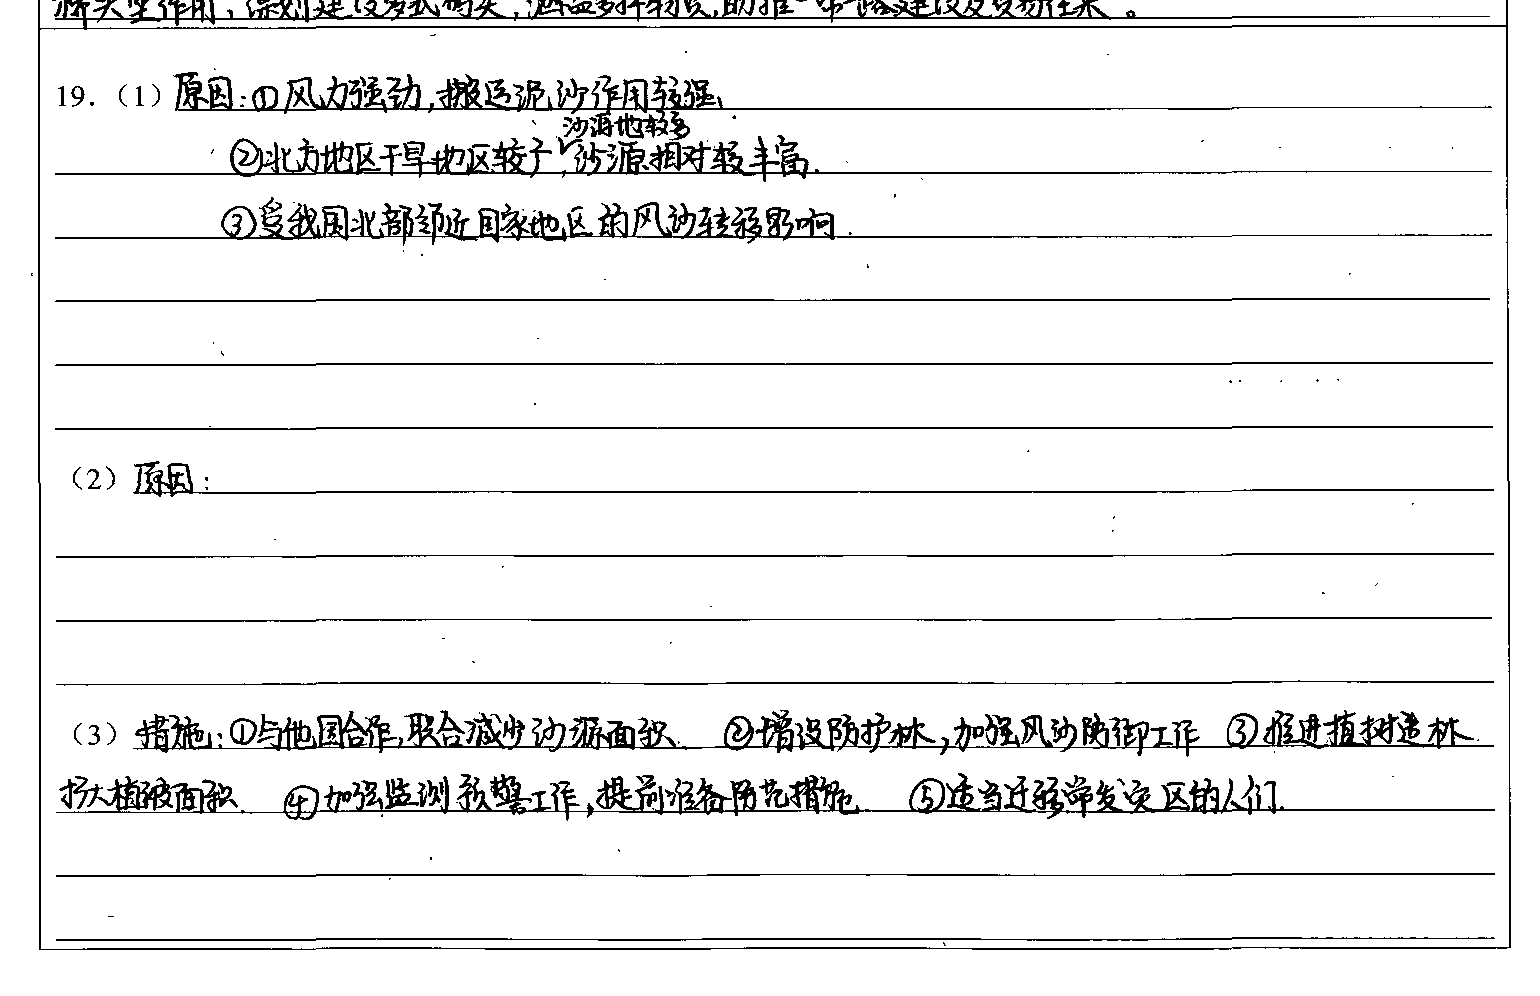 作用,规划建设多式码头,涵盖多种物资,助推一带一路建设及贸易往来。
19.(1)原因:①风力强劲,搬运泥沙作用较强、
沙源地较多
②北方地区干旱地区较于,沙源相对较丰富.
③受我国北部邻近国家地区的风沙转移影响.
(2)原因:
(3)措施:①与他国合作,联合减少沙源面积. ②增设防护林,加强风沙防御工作 ③推进植树造林
扩大植被面积. ④加强监测预警工作,提前准备防范措施. ⑤适当迁移常发灾区的人们.